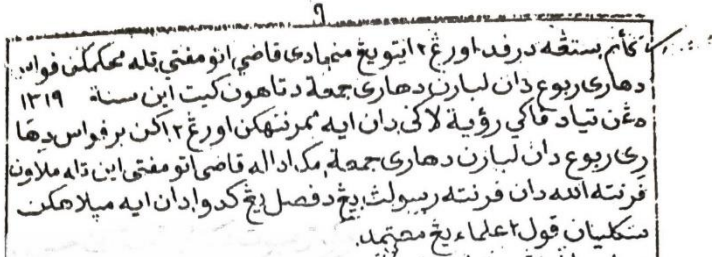 ٩
بستڠه درفد اورڠ٢ ايتو يڠ منجادى قاضي اتو مفتي تله محكمكن فواس
دهارى ربوع دان لبارن دهارى جمعة دتاهون كيت اين سنة ١٣١٩
دڠن تياد فاكي رؤية لاكى دان ايه ممرنتهكن اورڠ٢ اكن برفواس دها
رى ربوع دان لبارن دهارى جمعة، مك اداله قاضى اتو مفتي اين تله ملاون
فرنته الله دان فرنته رسولڽ يڠ دفصل يڠ كدوا، دان ايه ميلاهكن
سكليان قول٢ علماء يڠ معتمد.